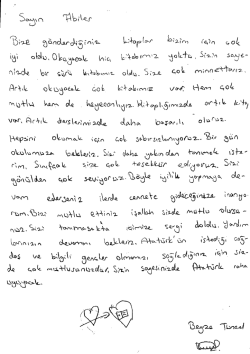 Sayın Abiler
Bize gönderdiğiniz kitaplar bizim için çok
iyi oldu. Okuyacak hiç kitabımız yoktu. Sizin saye-
nizde bir sürü kitabımız oldu. Size çok minnettarız.
Artık okuyacak çok kitabımız var. Hem çok
mutlu hem de heyecanlıyız. Kitaplığımızda artık kitap
var. Artık derslerimizde daha başarılı oluruz.
Hepsini okumak için çok sabırsızlanıyoruz. Bir gün
okulumuza bekleriz. Sizi daha yakından tanımak iste-
rim. Sınıfcak size çok teşekkür ediyoruz. Sizi
gönülden çok seviyoruz. Böyle iyilik yapmaya de-
vam ederseniz ilerde cennete gideceğinize inanıyo-
rum. Bizi mutlu ettiniz işallah sizde mutlu olursu-
nuz. Sizi tanımasakta içimize sevgi doldu. Yardım
larınızın devamını bekleriz. Atatürk'ün istediği çağ-
daş ve bilgili gençler olmamızı sağladığınız için siz-
de çok mutlusunuzdur. Sizin sayenizde Atatürk rahat
uyuyacak.
Beyza